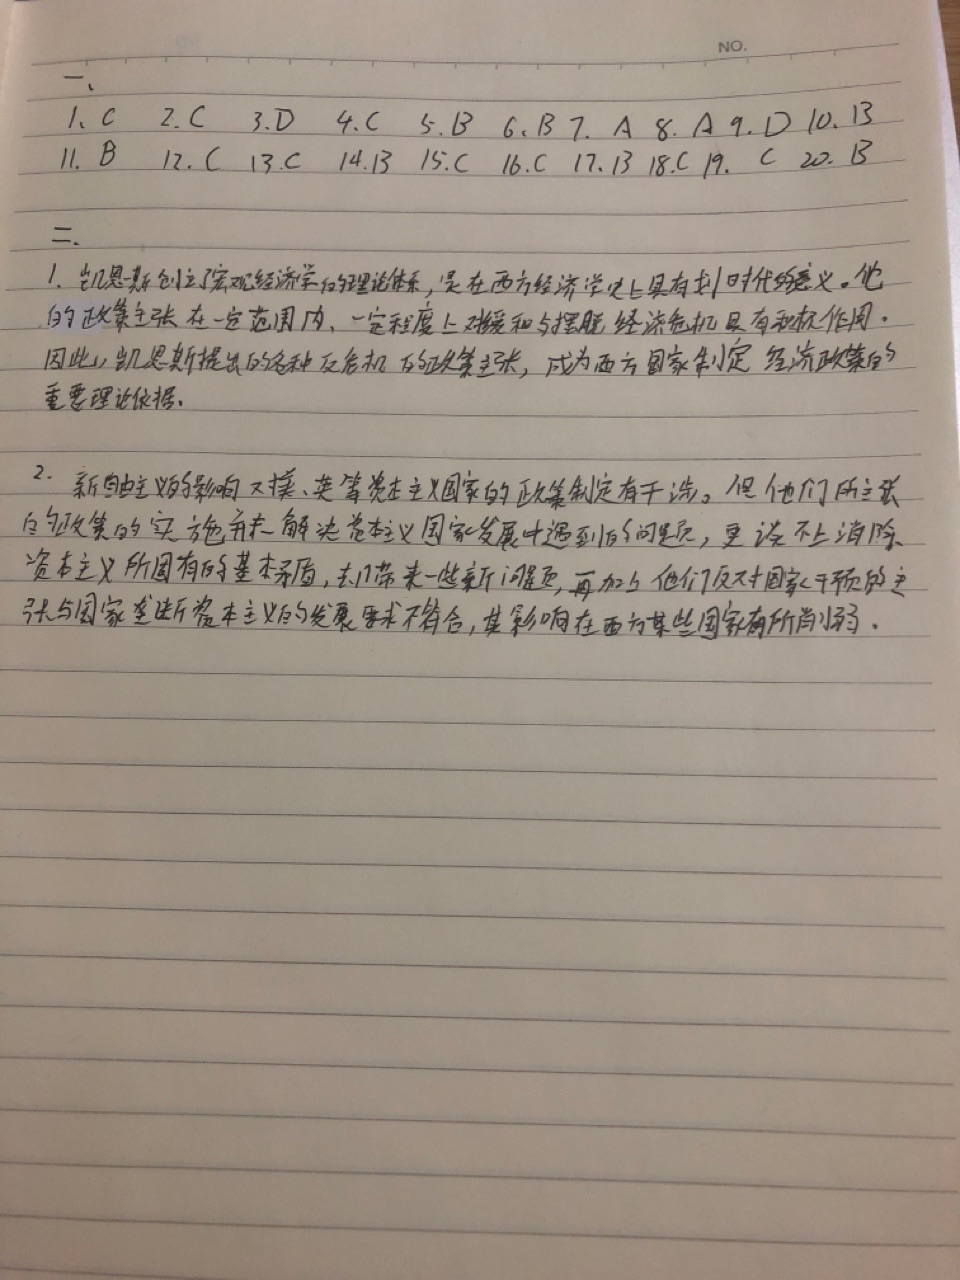 NO.
一、
1. C 2. C 3. D 4. C 5. B 6. B 7. A 8. A 9. D 10. B
11. B 12. C 13. C 14. B 15. C 16. C 17. B 18. C 19. C 20. B
二、
1. 凯恩斯创立了宏观经济学的理论体系，是在西方经济学史上具有划时代的意义。他
的政策主张在一定范围内、一定程度上对缓和与摆脱经济危机具有积极作用。
因此，凯恩斯提出的各种反危机的政策主张，成为西方国家制定经济政策的
重要理论依据。
2. 新自由主义的影响对美、英等资本主义国家的政策制定有干涉。但他们所主张
的政策的实施并未解决资本主义国家发展中遇到的问题，更谈不上消除
资本主义所固有的基本矛盾，却带来一些新问题，再加上他们反对国家干预的主
张与国家垄断资本主义的发展要求不符合，其影响在西方某些国家有所削弱。